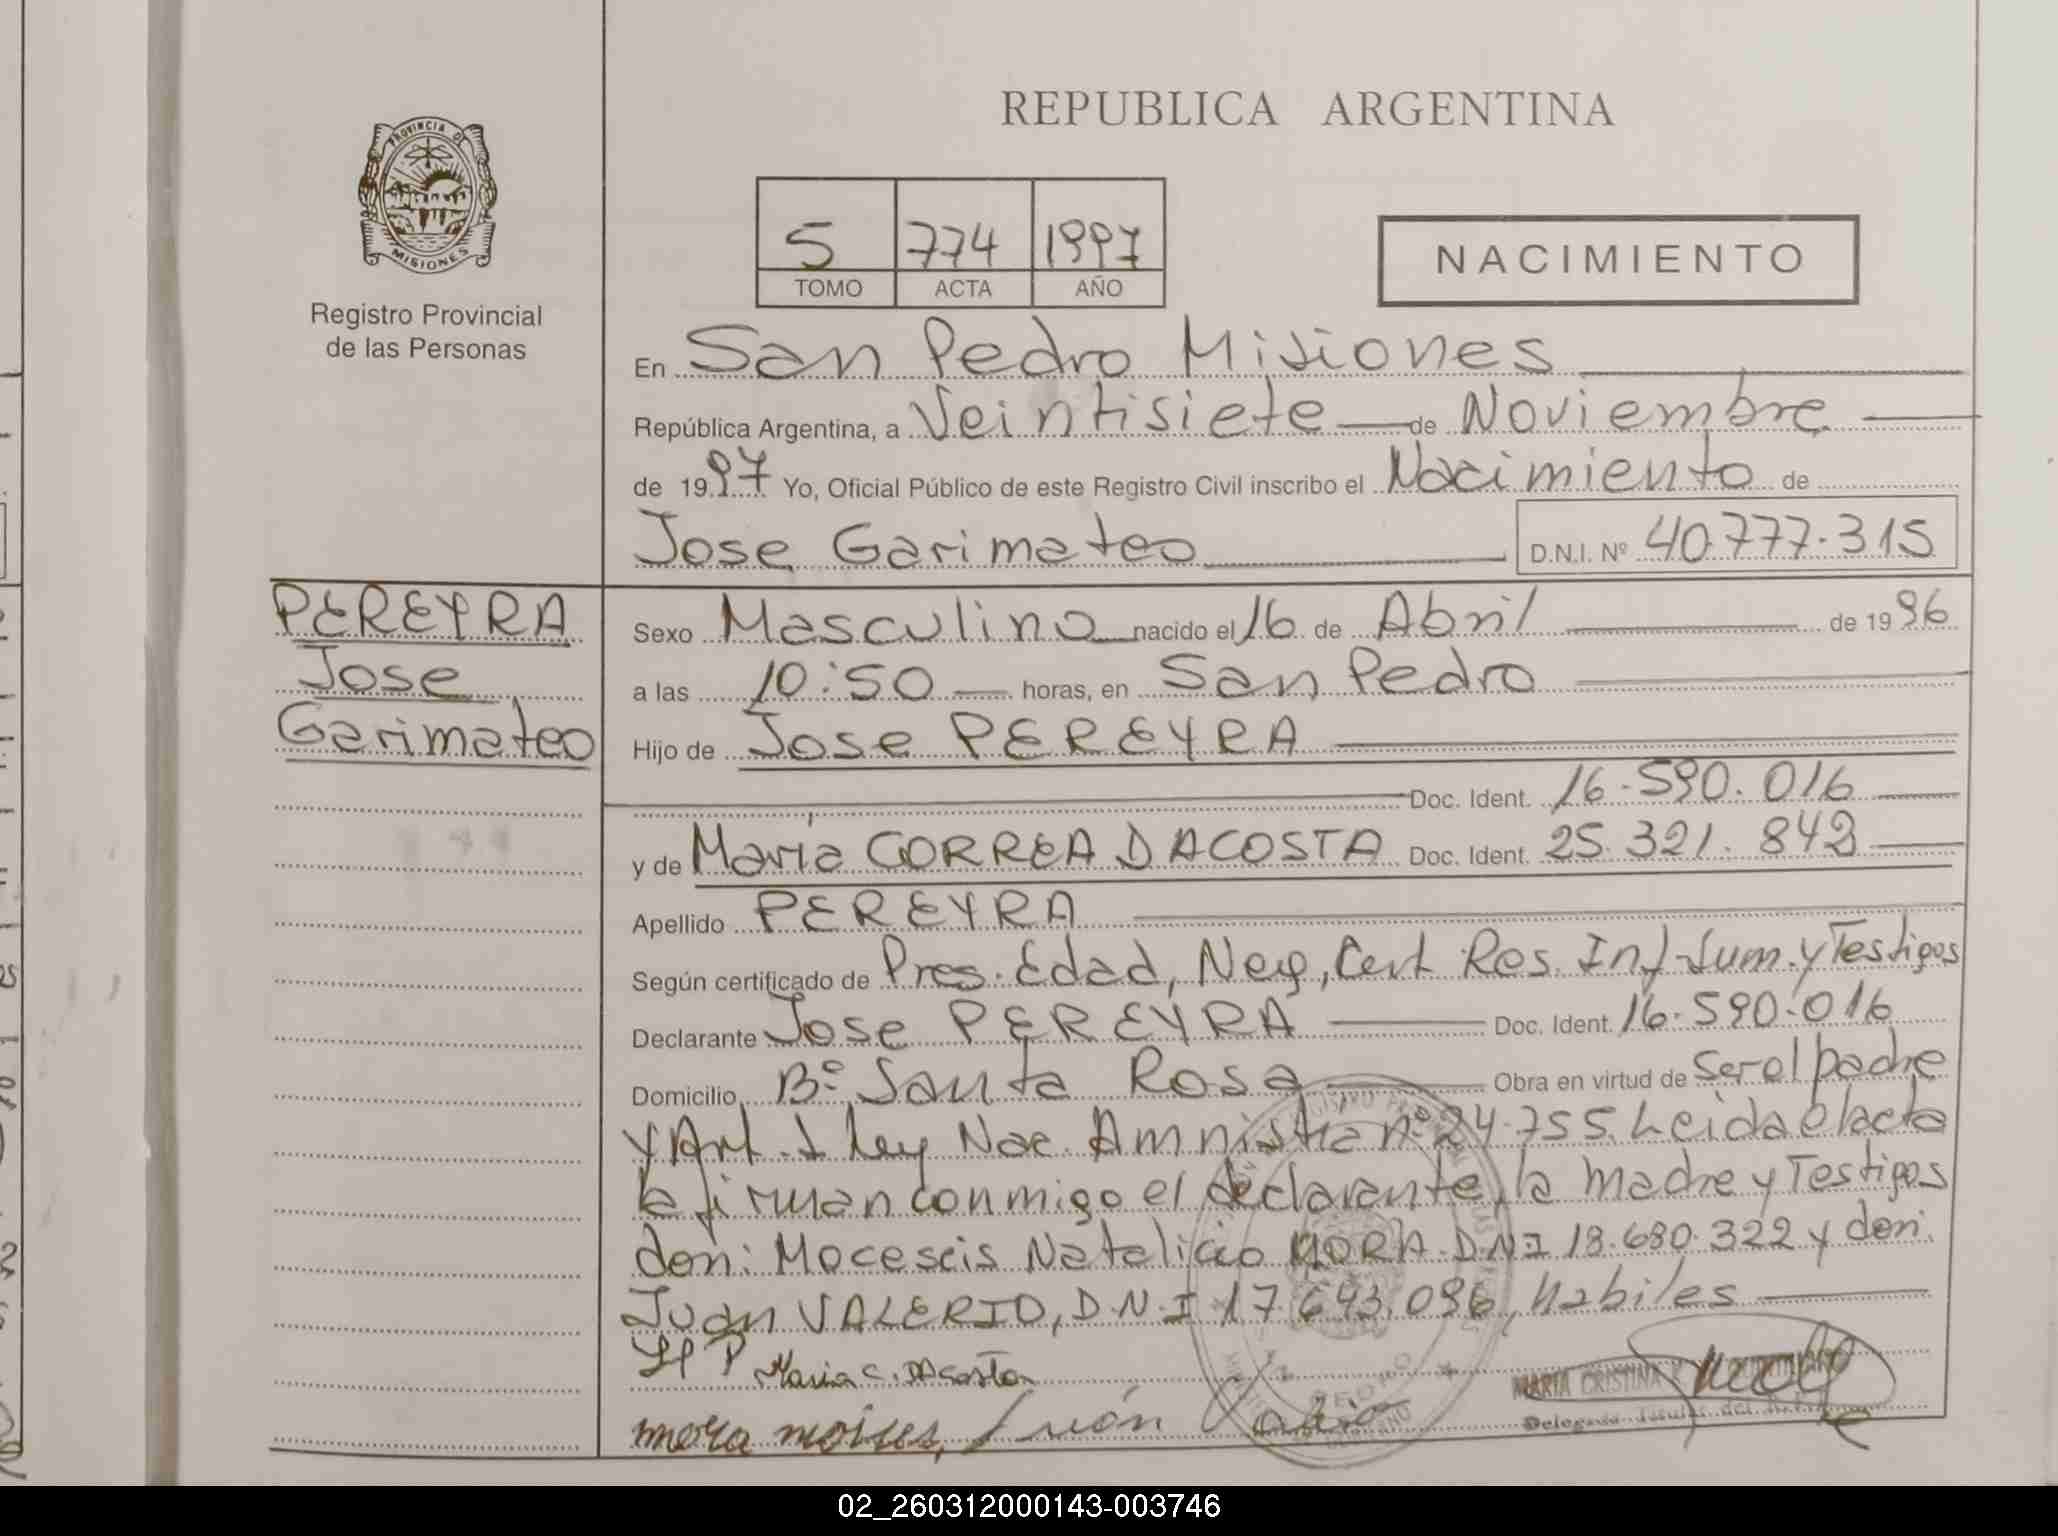 REPUBLICA ARGENTINA
PROVINCIA DE
MISIONES
Registro Provincial
de las Personas
5 774 1997
TOMO ACTA AÑO
NACIMIENTO
En San Pedro Misiones
República Argentina, a Veintisiete de Noviembre
de 1997 Yo, Oficial Público de este Registro Civil inscribo el Nacimiento de
Jose Garimateo D.N.I. Nº 40.777.315
PEREYRA
Jose
Garimateo
Sexo Masculino nacido el 16 de Abril de 1996
a las 10:50 horas, en San Pedro
Hijo de Jose PEREYRA
Doc. Ident. 16.590.016
y de Maria CORREA DACOSTA Doc. Ident. 25.321.842
Apellido PEREYRA
Según certificado de Pres. Edad, Neg, Cert Res. Inf-Sum. y Testigos
Declarante Jose PEREYRA Doc. Ident. 16.590.016
Domicilio Bº Santa Rosa Obra en virtud de Ser el padre
y Art. 1 Ley Nac. Amnistia nº 24.755. Leida el acta
la firman conmigo el declarante, la madre y Testigos
don: Natalicio MORA D.N.I 18.680.322 y don:
Juan VALERIO, D.N.I 17.693.096, habiles
Maria C. DAcosta
MARIA CRISTINA
mora moises,
02_260312000143-003746